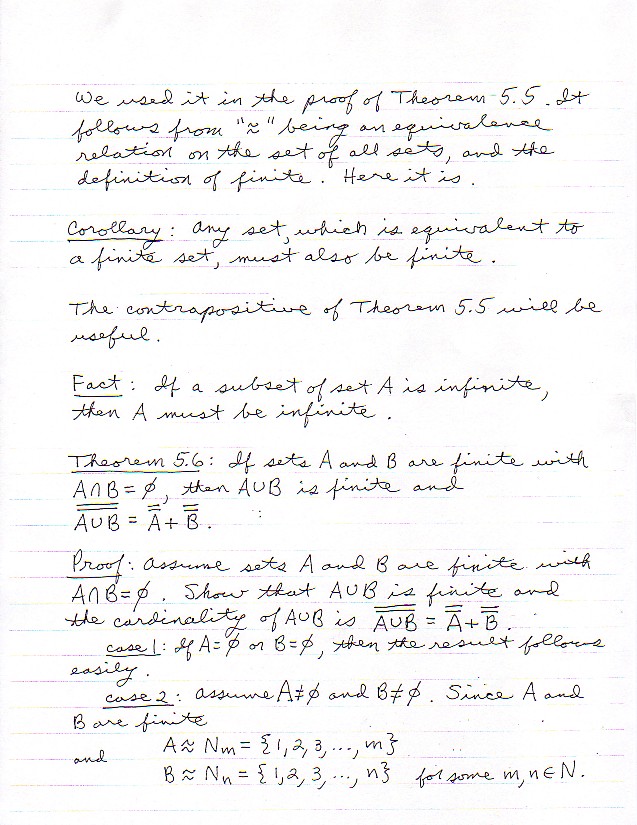 We used it in the proof of Theorem 5.5. It
follows from "≈" being an equivalence
relation on the set of all sets, and the
definition of finite. Here it is.
Corollary: Any set, which is equivalent to
a finite set, must also be finite.
The contrapositive of Theorem 5.5 will be
useful.
Fact: If a subset of set A is infinite,
then A must be infinite.
Theorem 5.6: If sets A and B are finite with
A∩B = ∅, then A∪B is finite and
A̿∪̿B̿ = A̿ + B̿.
Proof: Assume sets A and B are finite with
A∩B=∅. Show that A∪B is finite and
the cardinality of A∪B is A̿∪̿B̿ = A̿ + B̿.
case 1: If A=∅ or B=∅, then the result follows
easily.
case 2: Assume A≠∅ and B≠∅. Since A and
B are finite
A ≈ Nₘ = {1,2,3,..., m}
and
B ≈ Nₙ = {1,2,3,..., n} for some m,n∈N.